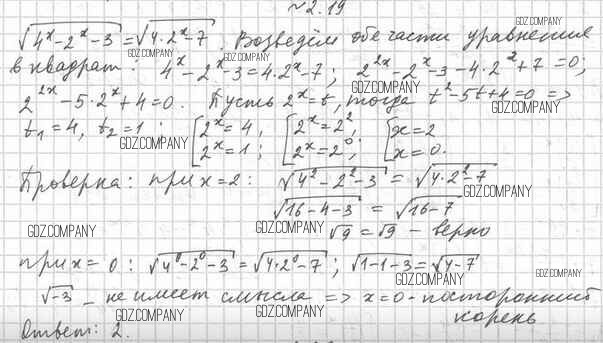 №2.19
√(4ˣ-2ˣ-3) = √(4·2ˣ-7). Возведём обе части уравнения
в квадрат: 4ˣ-2ˣ-3=4·2ˣ-7; 2²ˣ-2ˣ-3-4·2ˣ+7=0;
2²ˣ-5·2ˣ+4=0. Пусть 2ˣ=t, тогда t²-5t+4=0 =>
t₁=4, t₂=1; [2ˣ=4, 2ˣ=1; [2ˣ=2², 2ˣ=2⁰; [x=2 x=0.
Проверка: при x=2: √(4²-2²-3) = √(4·2²-7)
√(16-4-3) = √(16-7)
√9 = √9 - верно
при x=0: √(4⁰-2⁰-3) = √(4·2⁰-7); √(1-1-3) = √(4-7)
√-3 - не имеет смысла => x=0 - посторонний
корень
Ответ: 2.
GDZ.COMPANY
GDZ.COMPANY
GDZ.COMPANY
GDZ.COMPANY
GDZ.COMPANY
GDZ.COMPANY
GDZ.COMPANY
GDZ.COMPANY
GDZ.COMPANY
GDZ.COMPANY
GDZ.COMPANY
GDZ.COMPANY
GDZ.COMPANY